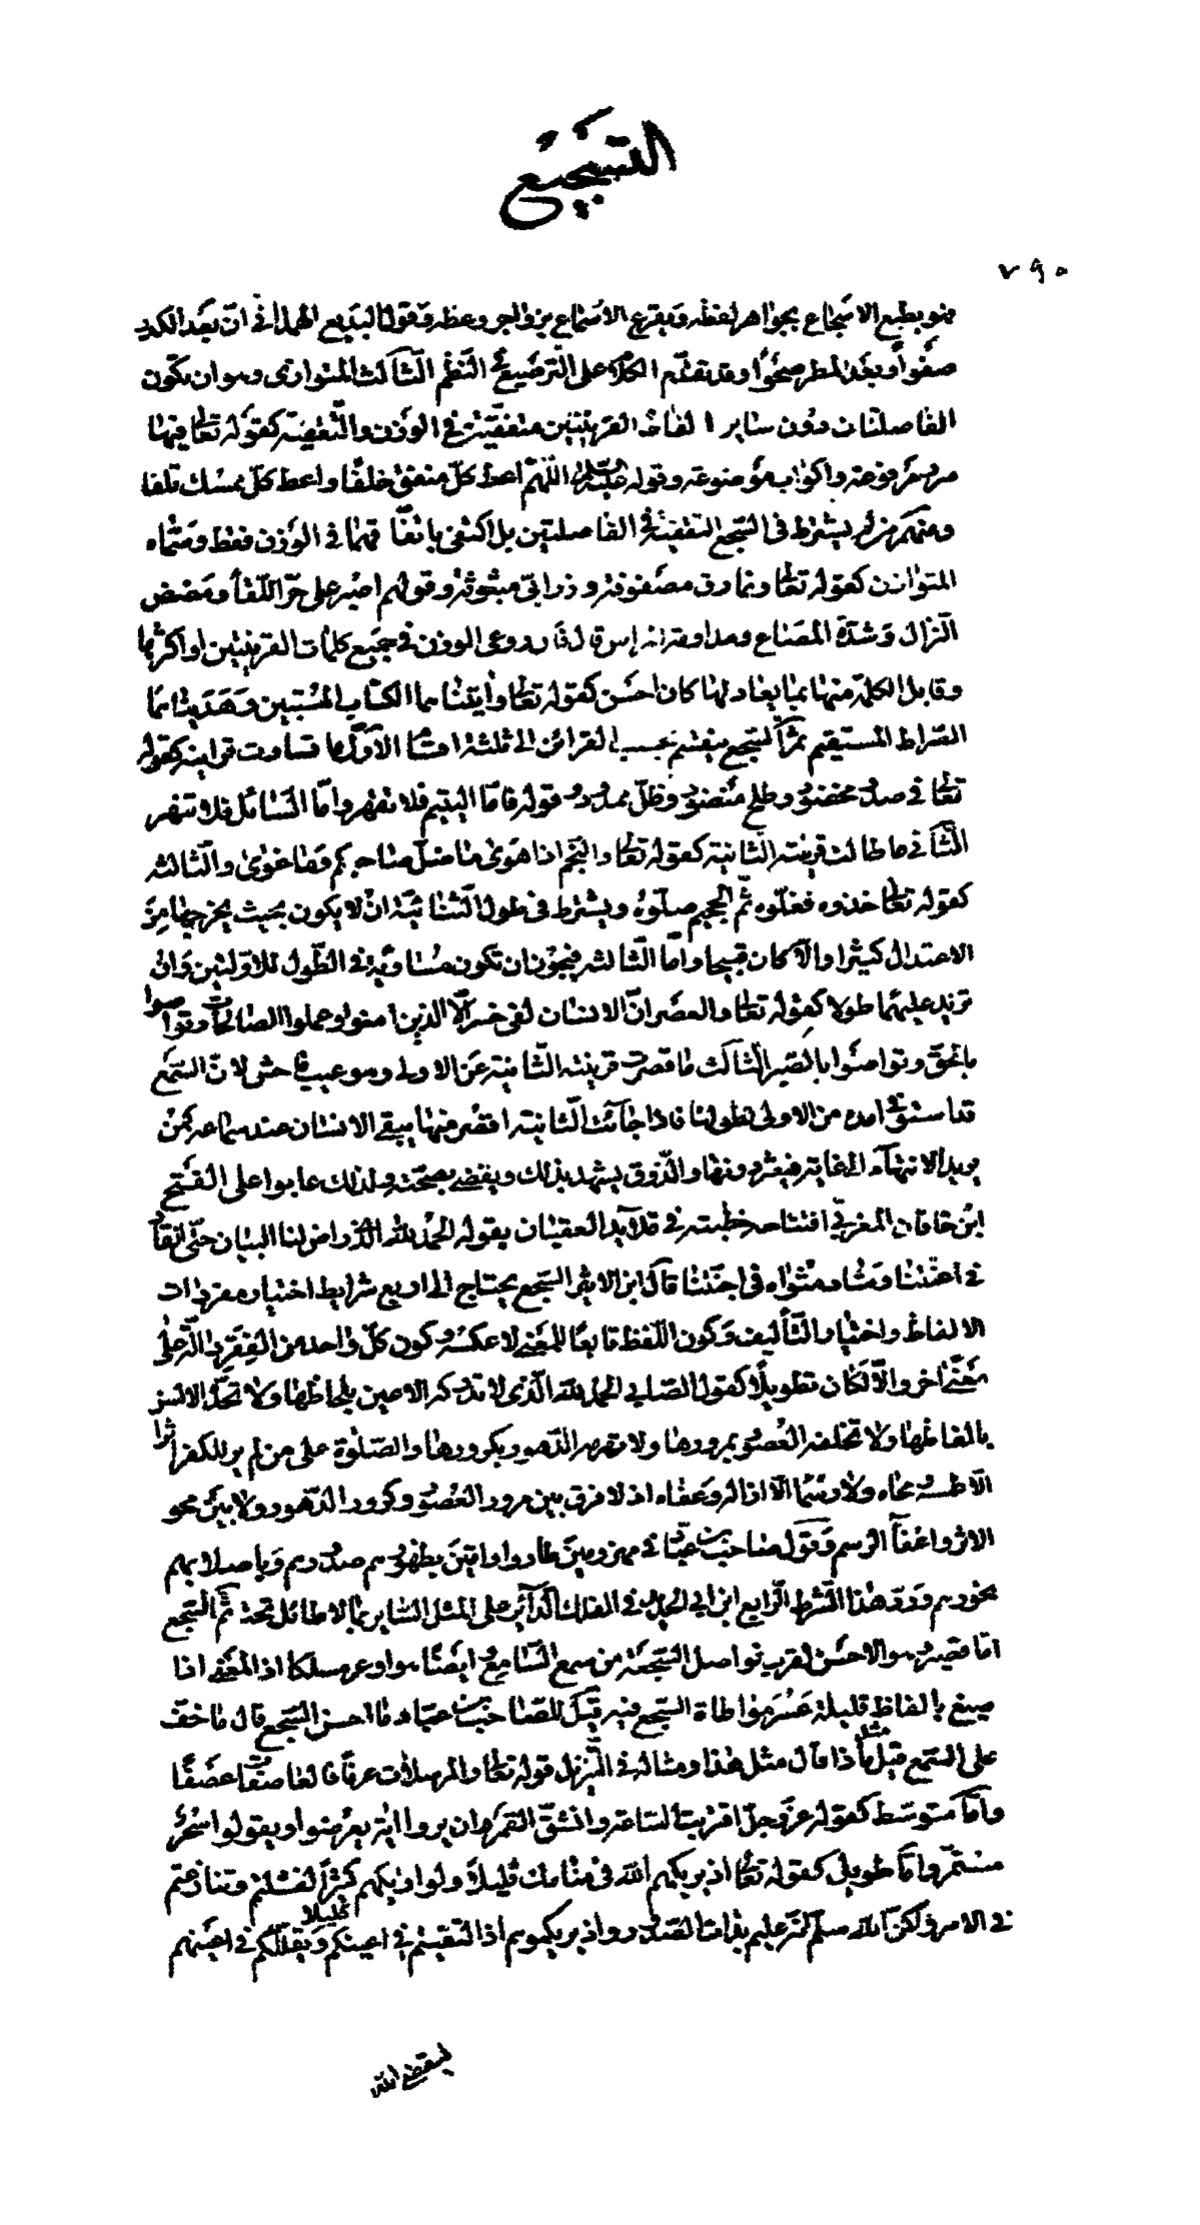 التسجيع
٧٩٠
فهو يطبع الاسجاع بجواهر لفظه ويقرع الاسماع بزواجر وعظه وقول البديع الهمدانى انّ بعد الكدر
صفواً وبعد المطر صحواً وقد تقدّم الكلام على الترصيع فى النظم الثالث المتوازى وهو ان تكون
الفاصلتان دون ساير الفاظ القرينتين متفقتين فى الوزن والتقفية كقوله تعالى فيها
سرر مرفوعة واكواب موضوعة وقوله اللّهمّ اعط كلّ منفق خلفًا واعط كلّ ممسك تلفا
ومنهم من لم يشترط فى السجع التقفية فى الفاصلتين بل اكتفى باتّفاقهما فى الوزن فقط وسمّاه
المتوازن كقوله تعالى ونمارق مصفوفة وزرابىّ مبثوثة وقولهم اصبر على حرّ اللّقاء ومضض
النزال وشدّة المصاع ومداومة المراس قال فان روعى الوزن فى جميع كلمات القرينتين او اكثرها
وقابل الكلمة منها بما يعادلها كان احسن كقوله تعالى وآتيناهما الكتاب المستبين وهديناهما
الصّراط المستقيم ثمّ السّجع ينقسم بحسب القرائن الى ثلثة اقسام الاوّل ما تساوت قراينه كقوله
تعالى فى سدر مخضود وطلح منضود وظلّ ممدود وقوله فامّا اليتيم فلا تقهر وامّا السّائل فلا تنهر
الثّانى ما طالت قرينته الثّانية كقوله تعالى والنجم اذا هوى ما ضلّ صاحبكم وما غوى والثّالثة
كقوله تعالى خذوه فغلّوه ثمّ الجحيم صلّوه ويشترط فى طول الثّانية ان لا يكون بحيث يخرجها من
الاعتدال كثيرا والّا كان قبيحا وامّا الثّالثة فيجوز ان تكون مساوية فى الطّول للاوّلتين وان
تزيد عليهما طولا كقوله تعالى والعصر انّ الانسان لفى خسر الّا الذين امنوا وعملوا الصّالحات وتواصوا
بالحقّ وتواصوا بالصّبر الثّالث ما قصرت قرينته الثّانية عن الاولى وهو عيب فاحش لانّ السّمع
قد استوفى امده من الاولى لطولها فاذا جاءت الثّانية اقصر منها يبقى الانسان عند سماعه كمن
يريد الانتهاء الى غاية فيعثر دونها والذّوق يشهد بذلك ويقضى بصحّته ولذلك عابوا على الفتح
ابن خاقان المغربىّ افتتاحه خطبته فى قلايد العقيان بقوله الحمد لله الذى راض لنا البيان حتّى انقاد
فى اعنّتنا وشاد مثواه فى اجنّتنا قال ابن الاثير السّجع يحتاج الى اربع شرايط اختيار مفردات
الالفاظ واختيار التّأليف وكون اللّفظ تابعًا للمعنى لا عكسه وكون كلّ واحد من الفقر دالّة على
معنى اخر والّا لكان تطويلًا كقول الصّابى الحمد لله الّذى لا تدركه الاعين بلحاظها ولا تحدّه الالسن
بالفاظها ولا تخلقه العصور بمرورها ولا تهرمه الدّهور بكرورها والصّلوة على من لم ير للكفر اثرا
الّا طمسه ومحاه ولا رسما الّا ازاله وعفاه اذ لا فرق بين مرور العصور وكرور الدّهور ولا بين محو
الاثر واعفاء الرسم وقول صاحب بن عبّاد فى مهزومين طاروا واقين بظهورهم صدورهم وباصلابهم
نحورهم وردّ هذا الشّرط الرّابع ابن ابى الحديد فى الفلك الدّائر على المثل السّاير بما لا طائل تحته ثمّ السّجع
امّا قصير وهو الاحسن لقرب فواصل السّجعة من سمع السّامع وايضًا هو اوعر مسلكا اذ المعنى اذا
صيغ بالفاظ قليلة عسر مواطاة السّجع فيه قيل للصّاحب بن عبّاد ما احسن السّجع قال ما خفّ
على السّمع قيل مثل ماذا قال مثل هذا ومثاله فى التّنزيل قوله تعالى والمرسلات عرفًا فالعاصفات عصفًا
وامّا متوسّط كقوله عزّ وجلّ اقتربت السّاعة وانشقّ القمر وان يروا اية يعرضوا ويقولوا سحر
مستمرّ وامّا طويل كقوله تعالى اذ يريكهم الله فى منامك قليلًا ولو اريكهم كثيرًا لفشلتم وتنازعتم
فى الامر ولكنّ الله سلّم انّه عليم بذات الصّدور واذ يريكموهم اذ التقيتم فى اعينكم قليلا ويقلّلكم فى اعينهم
ليقضى الله